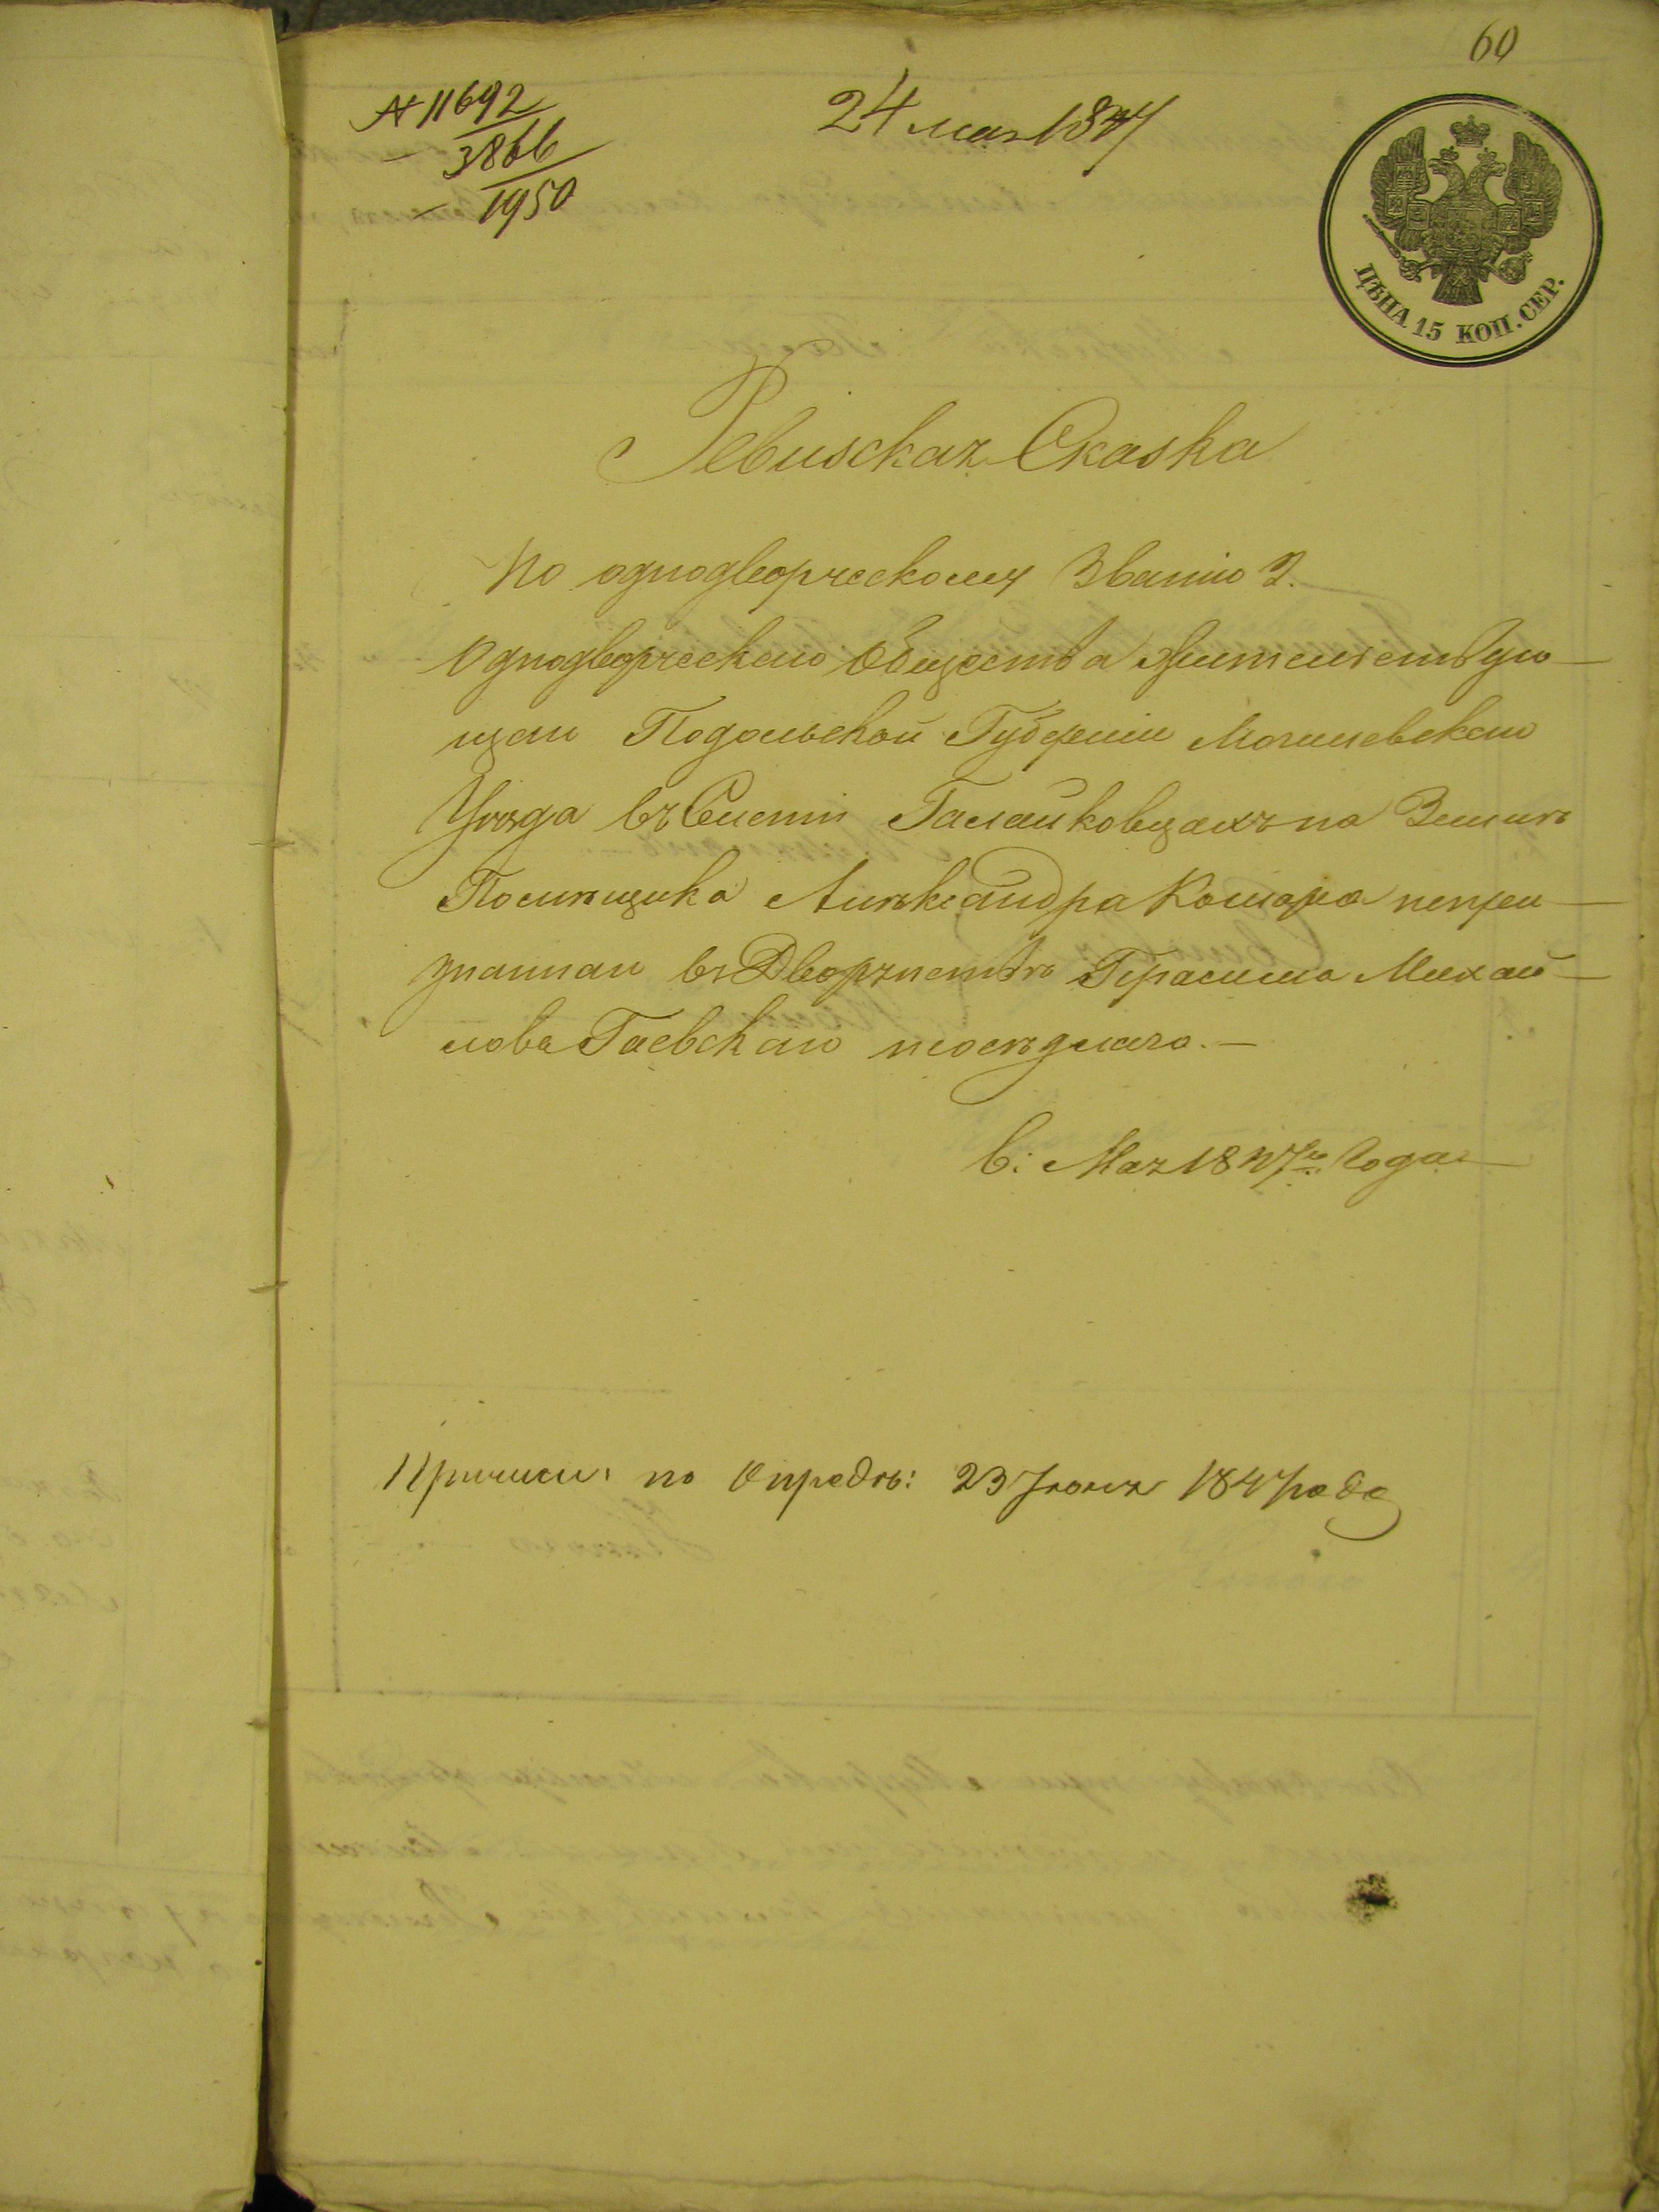 60
№ 11692
3866
1950
24 мая 1847
ЦѢНА 15 КОП. СЕР.
Ревизская Сказка
По однодворческому Званію 2.
Однодворческаго Общества жительствую-
щаго Подольской Губерніи Могилевскаго
Уѣзда въ Селеніи Галайковцахъ на Землѣ
Помѣщика Алѣксандра Комара непри-
знаннаго въ Дворянствѣ Герасима Михай-
лова Гаевскаго неосѣдлаго. —
В: Мая 1847го Года
Причисл: по Опредѣ: 23 Іюня 1847 года